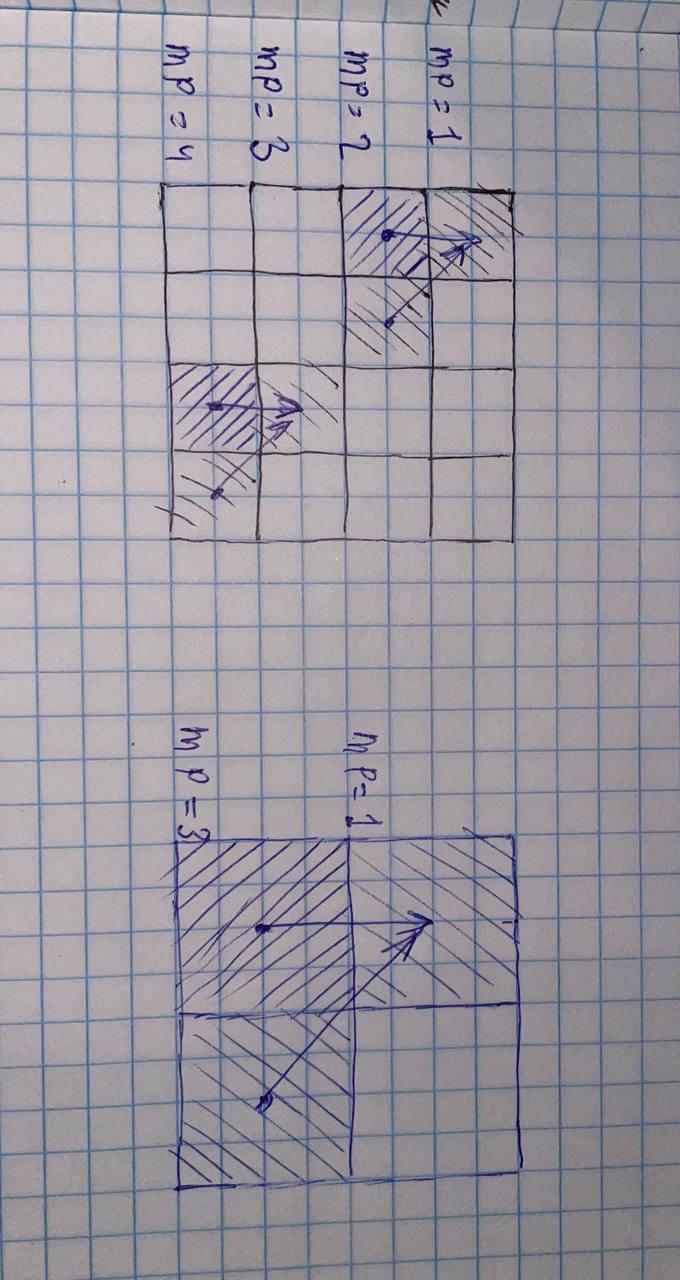 mp = 1
mp = 2
mp = 3
mp = 4
mp = 1
mp = 3